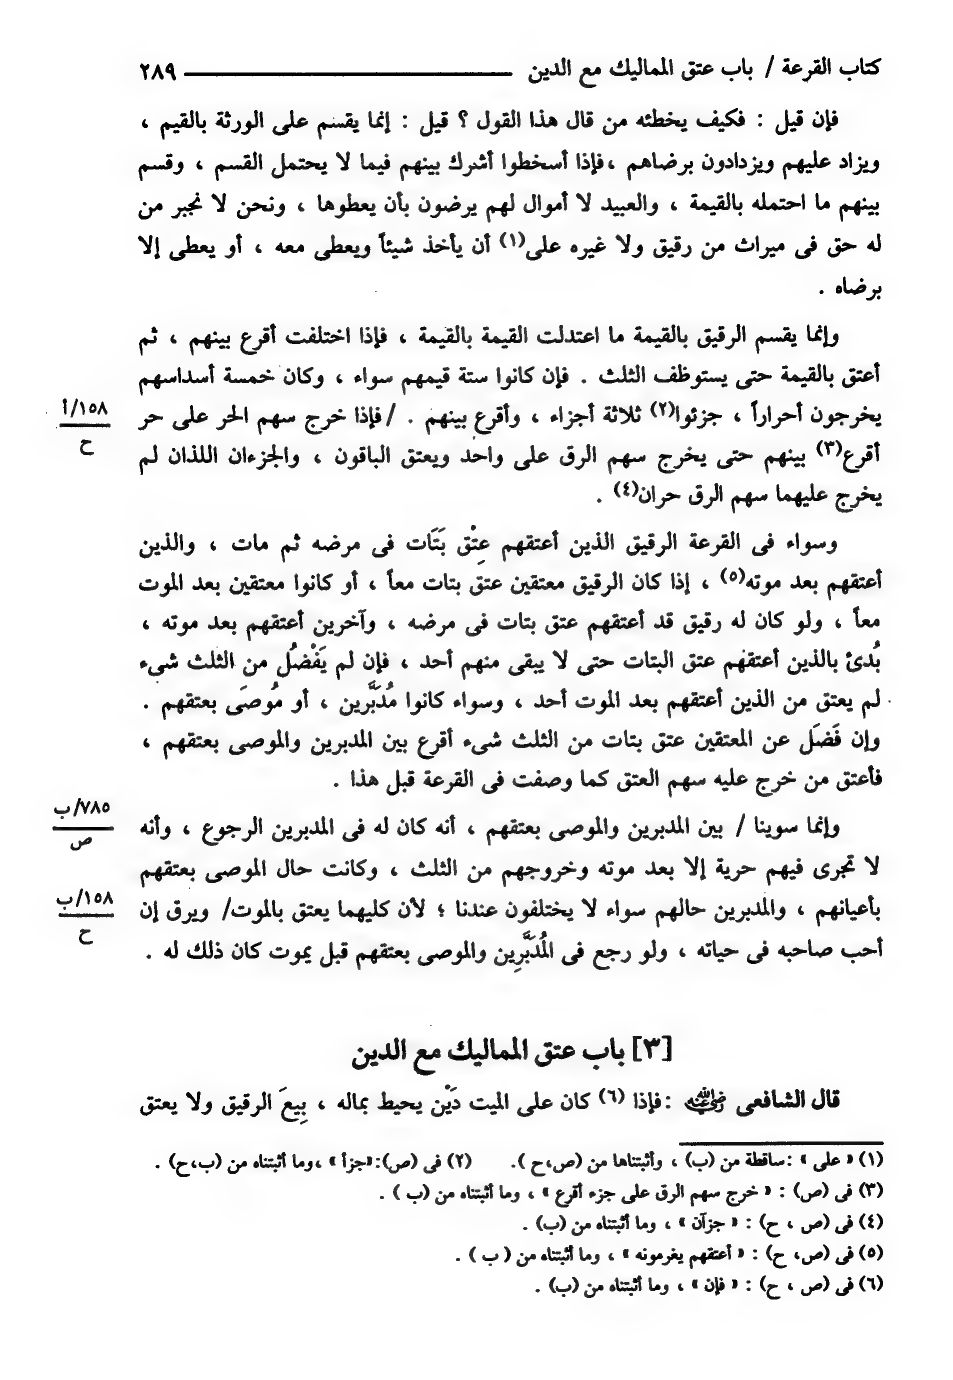 كتاب القرعة / باب عتق المماليك مع الدين ٢٨٩
فإن قيل : فكيف يخطئه من قال هذا القول ؟ قيل : إنما يقسم على الورثة بالقيم ،
ويزاد عليهم ويزدادون برضاهم ،فإذا أسخطوا أشرك بينهم فيما لا يحتمل القسم ، وقسم
بينهم ما احتمله بالقيمة ، والعبيد لا أموال لهم يرضون بأن يعطوها ، ونحن لا نجبر من
له حق فى ميراث من رقيق ولا غيره على(١) أن يأخذ شيئاً ويعطى معه ، أو يعطى إلا
برضاه .
وإنما يقسم الرقيق بالقيمة ما اعتدلت القيمة بالقيمة ، فإذا اختلفت أقرع بينهم ، ثم
أعتق بالقيمة حتى يستوظف الثلث . فإن كانوا ستة قيمهم سواء ، وكان خمسة أسداسهم
يخرجون أحراراً ، جزئوا(٢) ثلاثة أجزاء ، وأقرع بينهم . /فإذا خرج سهم الحر على حر
١٥٨/أ
ح
أقرع(٣) بينهم حتى يخرج سهم الرق على واحد ويعتق الباقون ، والجزءان اللذان لم
يخرج عليهما سهم الرق حران(٤) .
وسواء فى القرعة الرقيق الذين أعتقهم عِتْق بَتَات فى مرضه ثم مات ، والذين
أعتقهم بعد موته(٥) ، إذا كان الرقيق معتقين عتق بتات معاً ، أو كانوا معتقين بعد الموت
معاً ، ولو كان له رقيق قد أعتقهم عتق بتات فى مرضه ، وآخرين أعتقهم بعد موته ،
بُدئ بالذين أعتقهم عتق البتات حتى لا يبقى منهم أحد ، فإن لم يَفْضُل من الثلث شىء
لم يعتق من الذين أعتقهم بعد الموت أحد ، وسواء كانوا مُدَبَّرين ، أو مُوصَى بعتقهم .
وإن فَضَل عن المعتقين عتق بتات من الثلث شىء أقرع بين المدبرين والموصى بعتقهم ،
فأعتق من خرج عليه سهم العتق كما وصفت فى القرعة قبل هذا .
٧٨٥/ب
ص
وإنما سوينا / بين المدبرين والموصى بعتقهم ، أنه كان له فى المدبرين الرجوع ، وأنه
لا تجرى فيهم حرية إلا بعد موته وخروجهم من الثلث ، وكانت حال الموصى بعتقهم
١٥٨/ب
ح
بأعيانهم ، والمدبرين حالهم سواء لا يختلفون عندنا ؛ لأن كليهما يعتق بالموت/ ويرق إن
أحب صاحبه فى حياته ، ولو رجع فى المُدَبَّرِين والموصى بعتقهم قبل يموت كان ذلك له .
[٣] باب عتق المماليك مع الدين
قال الشافعى رضي الله عنه :فإذا (٦) كان على الميت دَيْن يحيط بماله ، بِيعَ الرقيق ولا يعتق
(١) « على » :ساقطة من (ب) ، وأثبتناها من (ص،ح ). (٢) فى (ص):«جزأ » ،وما أثبتناه من (ب،ح) .
(٣) فى (ص) : « خرج سهم الرق على جزء أقرع » ، وما أثبتناه من (ب ) .
(٤) فى (ص ، ح) : « جزآن » ، وما أثبتناه من (ب) .
(٥) فى (ص، ح) : « أعتقهم يغرمونه » ، وما أثبتناه من ( ب ) .
(٦) فى (ص ، ح) : « فإن » ، وما أثبتناه من (ب) .